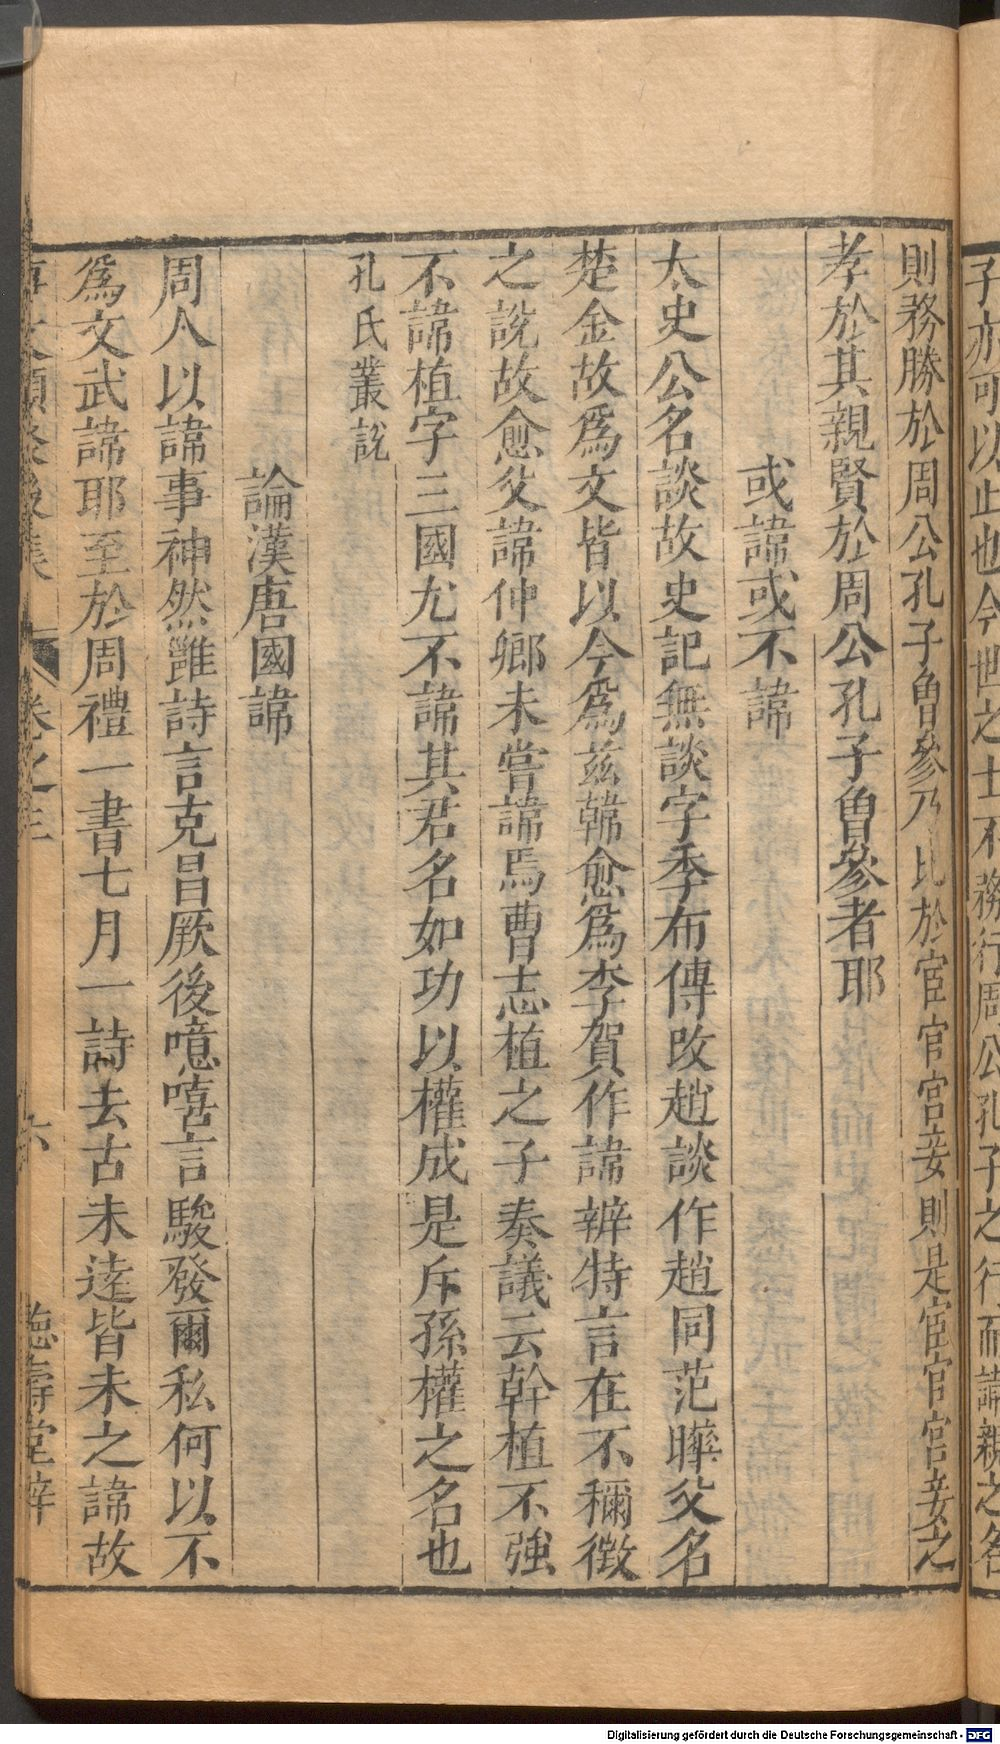 子亦可以止也今世之士不務行周公孔子之行而諱親之名
則務勝於周公孔子曾參乃比於宦官宮妾則是宦官宮妾之
孝於其親賢於周公孔子曾參者耶
或諱或不諱
太史公名談故史記無談字季布傳改趙談作趙同范曄父名
楚金故為文皆以今為茲韓愈為李賀作諱辨特言在不稱徵
之說故愈父諱仲卿未嘗諱焉曹志植之子奏議云幹植不強
不諱植字三國尤不諱其君名如功以權成是斥孫權之名也
孔氏叢說
論漢唐國諱
周人以諱事神然雖詩言克昌厥後噫嘻言駿發爾私何以不
為文武諱耶至於周禮一書七月一詩去古未逺皆未之諱故
事文類聚後集 卷之三 六 德壽堂梓
Digitalisierung gefördert durch die Deutsche Forschungsgemeinschaft - DFG